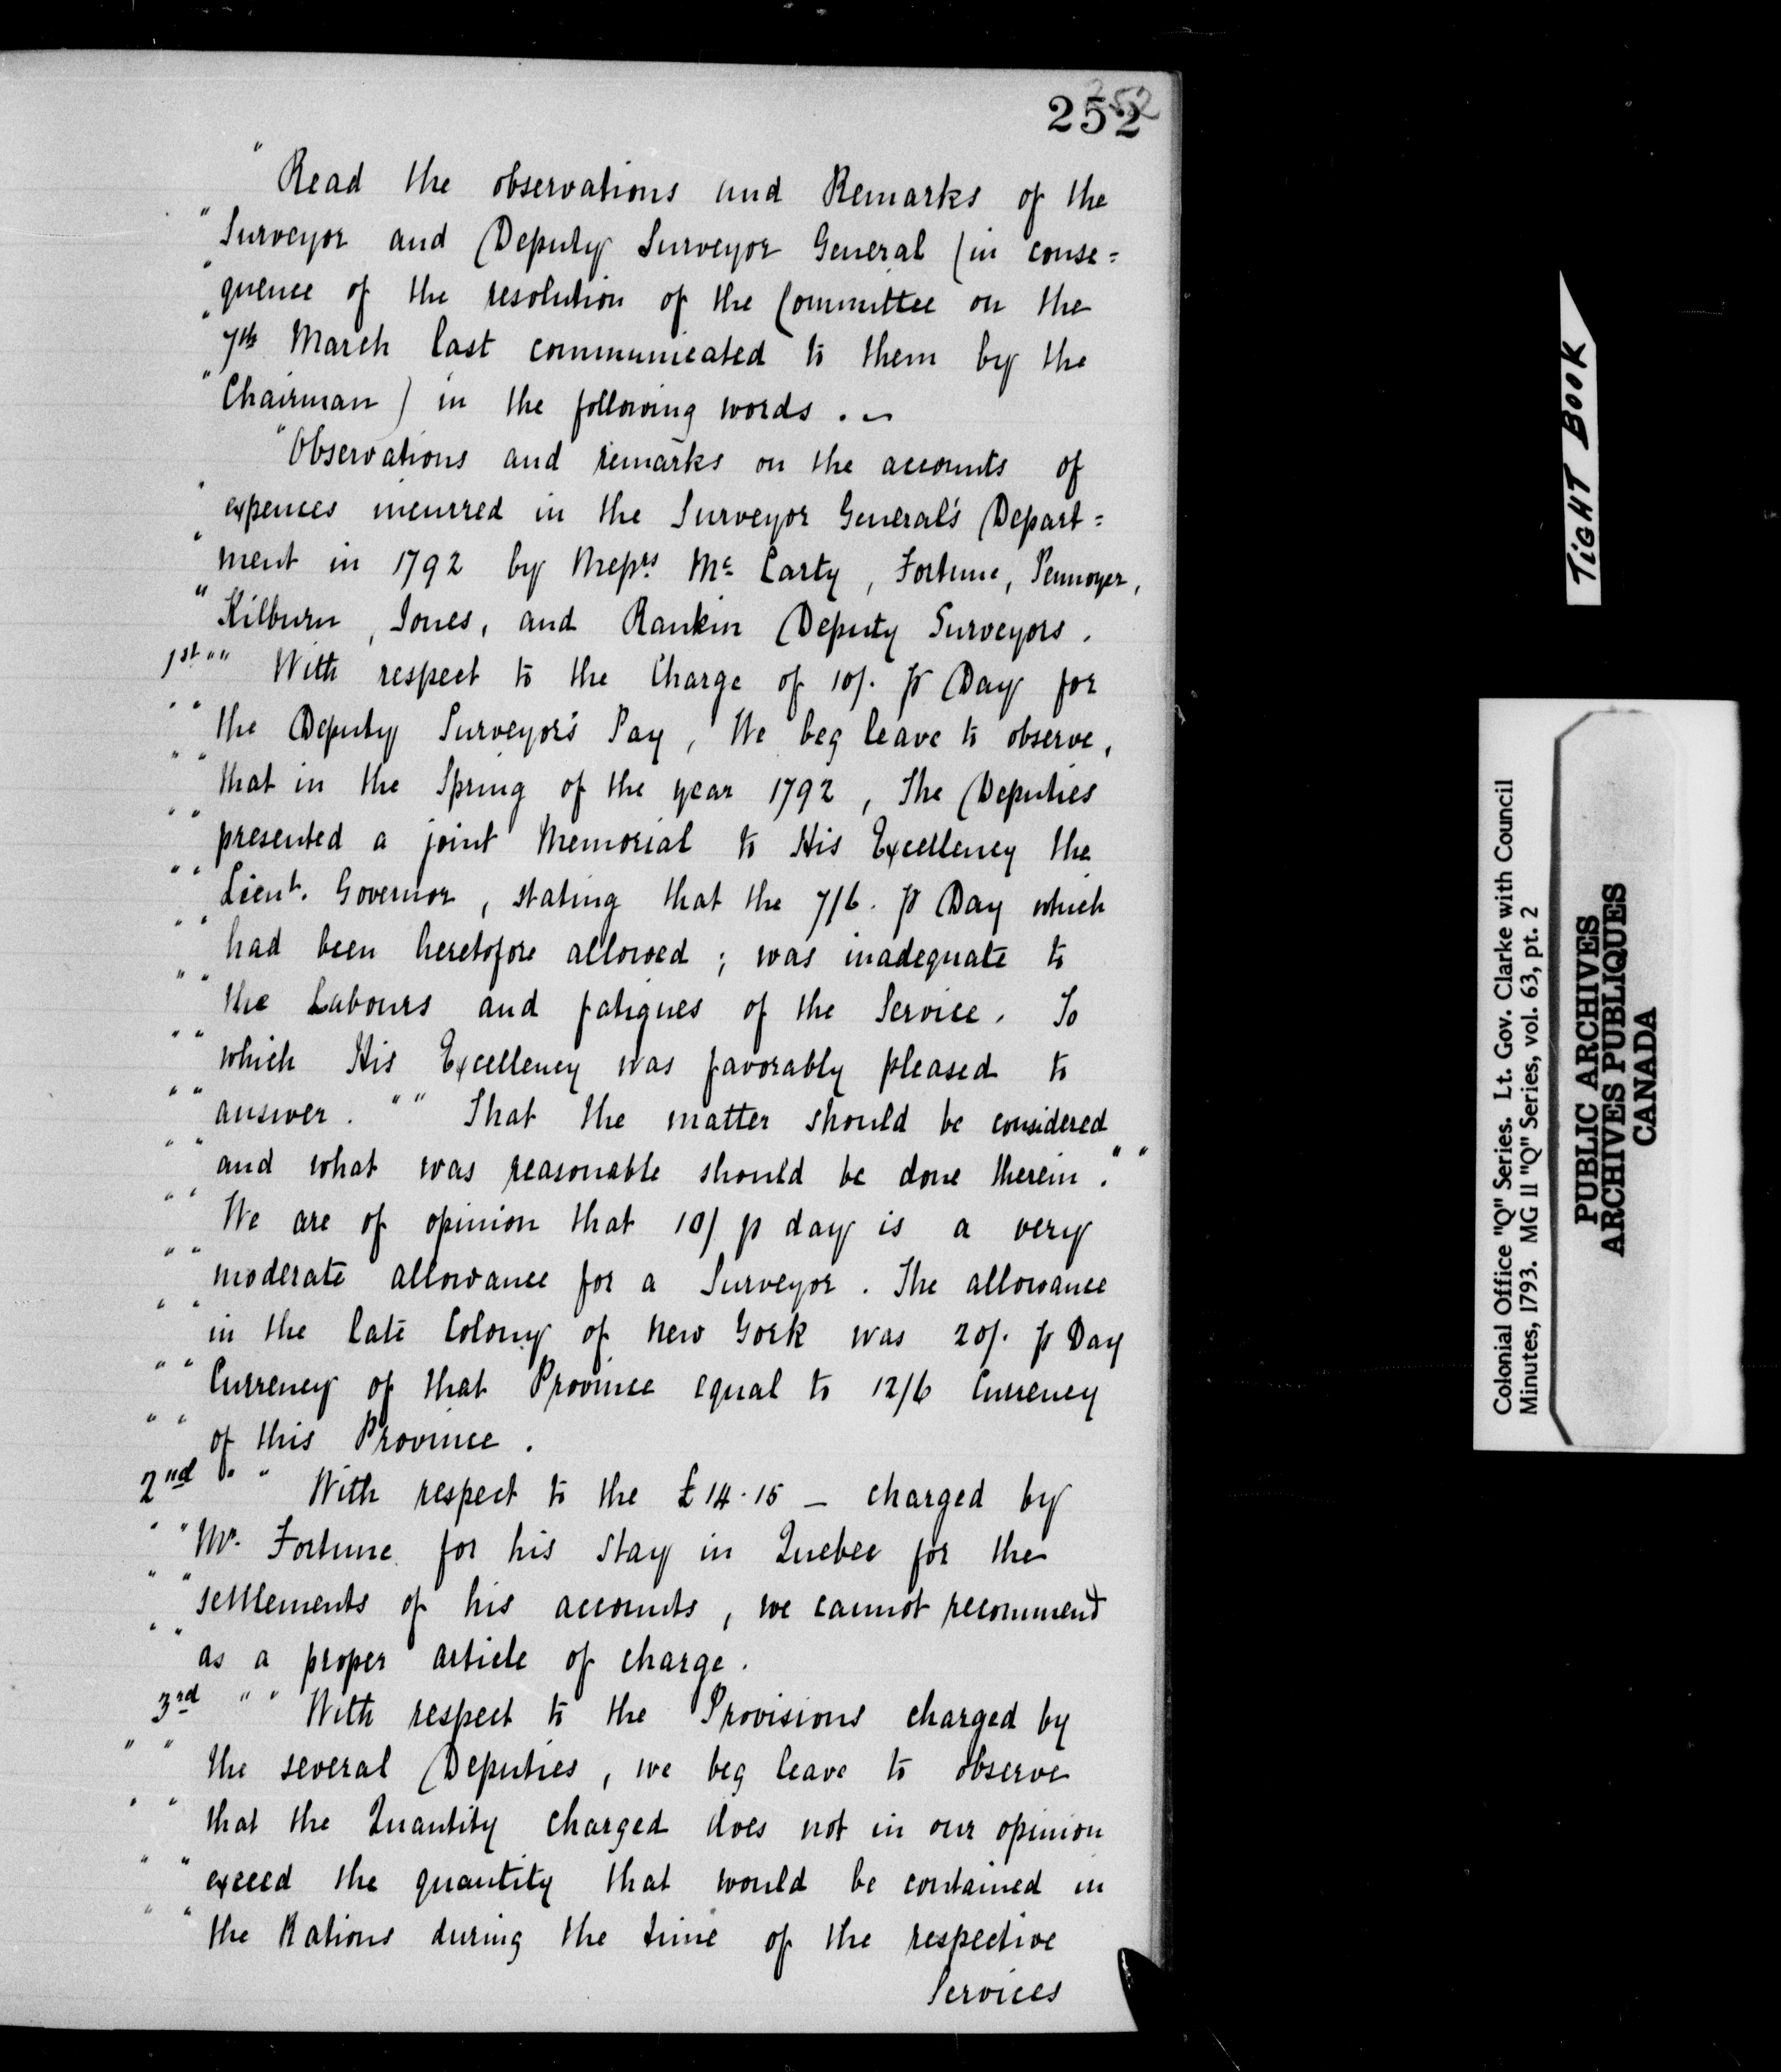 252
252
" Read the observations and Remarks of the
" Surveyor and Deputy Surveyor General (in conse=
" quence of the resolution of the Committee on the
" 7th March last communicated to them by the
" Chairman) in the following words . ~
" Observations and remarks on the accounts of
" expences incurred in the Surveyor General's Depart=
" ment in 1792 by Messrs. Mc Carty, Fortune, Pennoyer,
" Kilburn, Jones, and Rankin Deputy Surveyors.
1st " " With respect to the Charge of 10/. ⅌ Day for
" " the Deputy Surveyor's Pay, We beg leave to observe,
" " that in the Spring of the year 1792, The Deputies
" " presented a joint Memorial to His Excellency the
" " Lieut. Governor, stating that the 7/6. ⅌ Day which
" " had been heretofore allowed; was inadequate to
" " the Labours and fatigues of the Service. To
" " which His Excellency was favorably pleased to
" " answer. " " That the matter should be considered
" " and what was reasonable should be done therein. " "
" " We are of opinion that 10/ ⅌ day is a very
" " moderate allowance for a Surveyor. The allowance
" " in the late Colony of New York was 20/. ⅌ Day
" " Currency of that Province equal to 12/6 Currency
" " of this Province.
2nd " " With respect to the £14.15 — charged by
" " Mr. Fortune for his stay in Quebec for the
" " settlements of his accounts, we cannot recommend
" " as a proper article of charge.
3rd " " With respect to the Provisions charged by
" " the several Deputies, we beg leave to observe
" " that the Quantity charged does not in our opinion
" " exceed the quantity that would be contained in
" " the Rations during the time of the respective
Services
TIGHT BOOK
Colonial Office "Q" Series. Lt. Gov. Clarke with Council
Minutes, 1793. MG 11 "Q" Series, vol. 63, pt. 2
PUBLIC ARCHIVES
ARCHIVES PUBLIQUES
CANADA